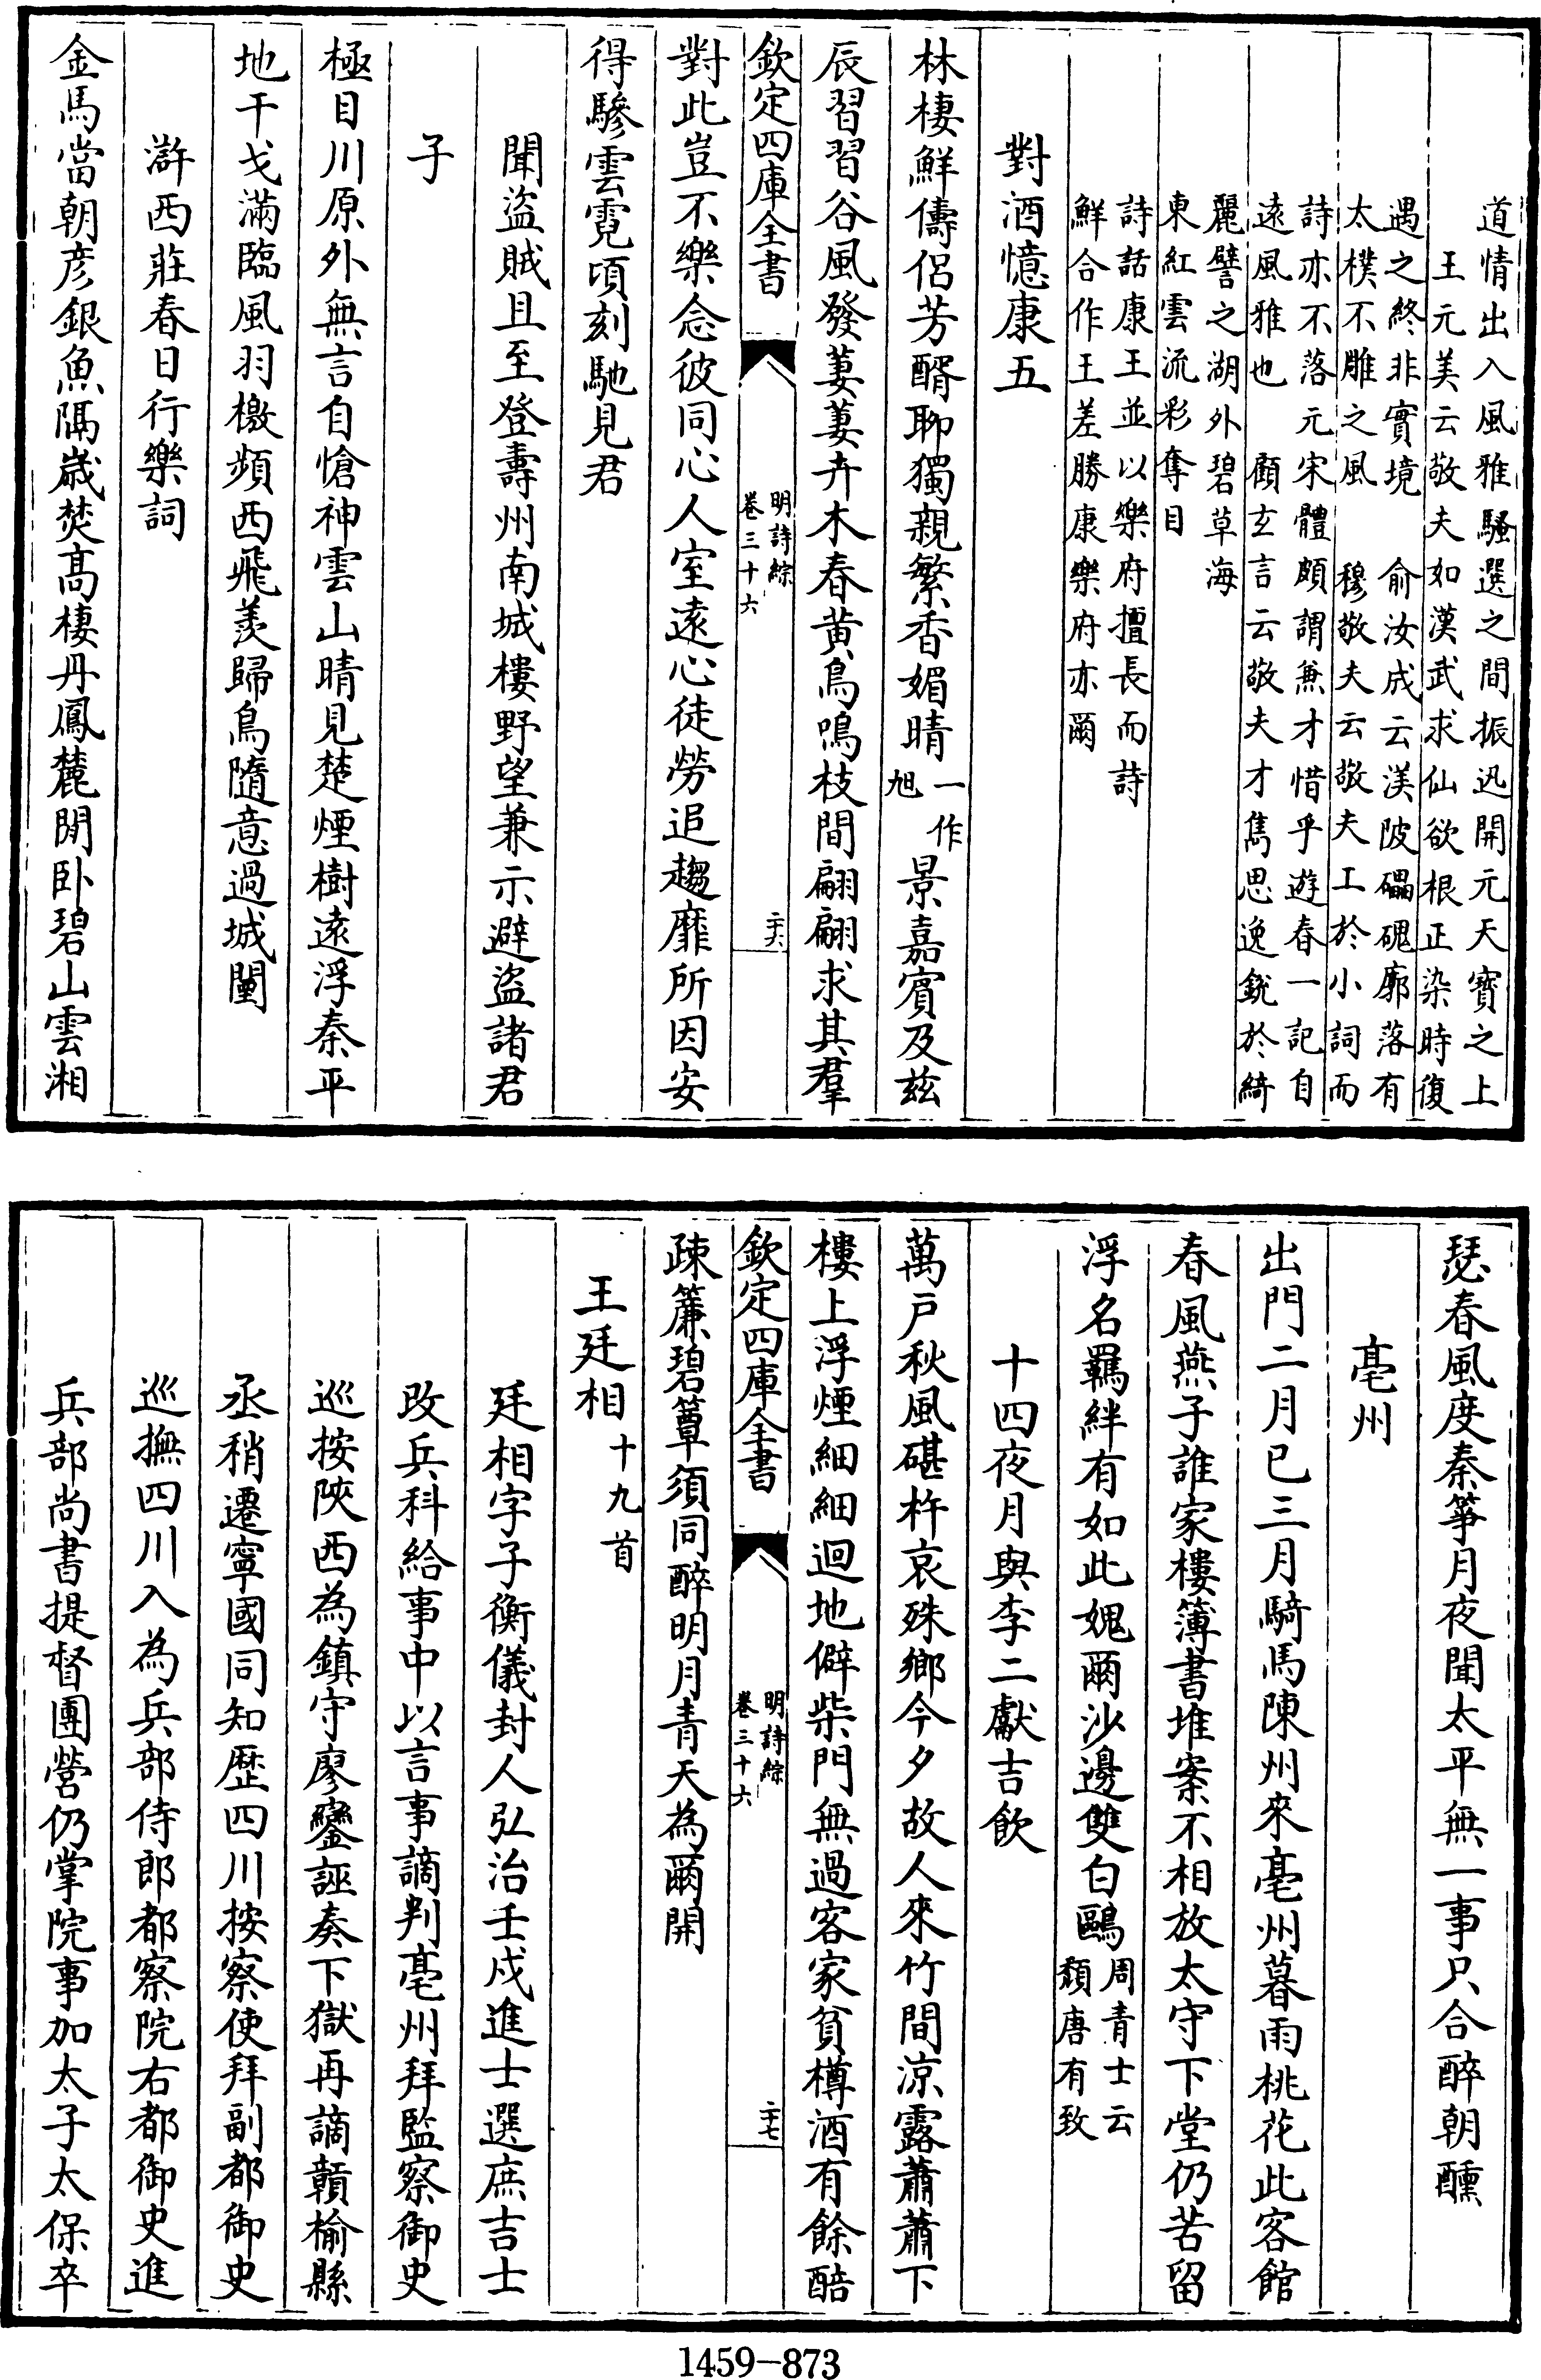 道情出入風雅騷選之間振迅開元天寶之上
王元美云敬夫如漢武求仙欲根正染時復
遇之終非實境　俞汝成云渼陂礧磈廓落有
太樸不雕之風　穆敬夫云敬夫工於小詞而
詩亦不落元宋體頗謂兼才惜乎遊春一記自
遠風雅也　顧玄言云敬夫才雋思逸銳於綺
麗譬之湖外碧草海
東紅雲流彩奪目
詩話康王並以樂府擅長而詩
鮮合作王差勝康樂府亦爾
對酒憶康五
林棲鮮儔侶芳醑聊獨親繁香媚晴一作旭景嘉賓及兹
辰習習谷風發萋萋卉木春黃鳥鳴枝間翩翩求其羣
欽定四庫全書
明詩綜
卷三十六
二十六
對此豈不樂念彼同心人室遠心徒勞追趨靡所因安
得驂雲霓頃刻馳見君
聞盜賊且至登壽州南城樓野望兼示避盜諸君
子
極目川原外無言自愴神雲山晴見楚煙樹遠浮秦平
地干戈滿臨風羽檄頻西飛羨歸鳥隨意過城闉
滸西莊春日行樂詞
金馬當朝彦銀魚隔嵗焚髙棲丹鳳麓閒卧碧山雲湘
瑟春風度秦箏月夜聞太平無一事只合醉朝醺
亳州
出門二月已三月騎馬陳州來亳州暮雨桃花此客館
春風燕子誰家樓簿書堆案不相放太守下堂仍苦留
浮名羈絆有如此媿爾沙邊雙白鷗周青士云
頹唐有致
十四夜月與李二獻吉飲
萬戸秋風碪杵哀殊鄉今夕故人來竹間涼露蕭蕭下
樓上浮煙細細迴地僻柴門無過客家貧樽酒有餘醅
欽定四庫全書
明詩綜
卷三十六
二十七
疎簾碧簟須同醉明月青天為爾開
王廷相十九首
廷相字子衡儀封人弘治壬戍進士選庶吉士
改兵科給事中以言事謫判亳州拜監察御史
巡按陜西為鎮守廖鑾誣奏下獄再謫贛榆縣
丞稍遷寧國同知歷四川按察使拜副都御史
巡撫四川入為兵部侍郎都察院右都御史進
兵部尚書提督團營仍掌院事加太子太保卒
1459—873